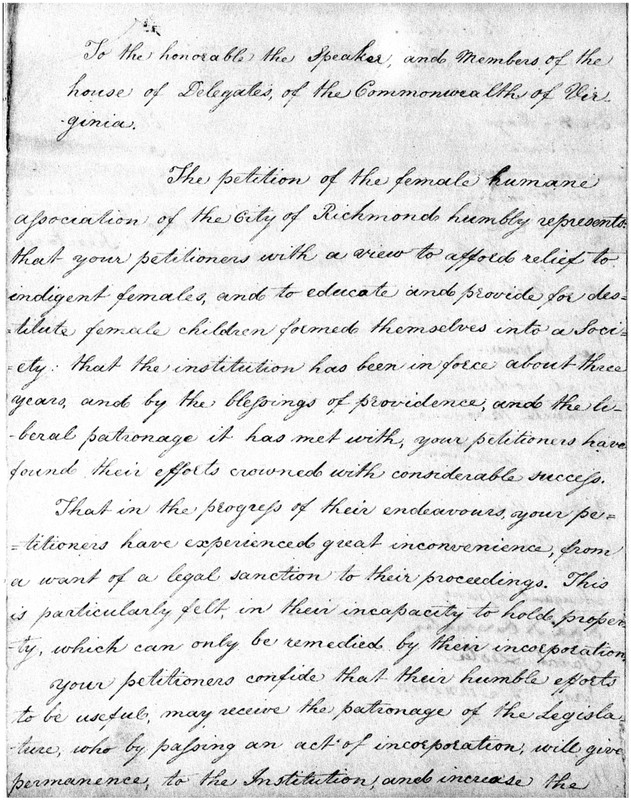 To the honorable the Speaker, and Members of the
house of Delegates, of the Commonwealth of Vir-
-ginia.
The petition of the female humane
association of the City of Richmond humbly represents
that your petitioners with a view to afford relief to
indigent females, and to educate and provide for des-
-titute female children formed themselves into a Soci=
=ety: that the institution has been in force about three
years, and by the blessings of providence, and the li-
-beral patronage it has met with, your petitioners have
found their efforts crowned with considerable success.
That in the progress of their endeavours, your pe=
=titioners have experienced great inconvenience, from
a want of a legal sanction to their proceedings. This
is particularly felt, in their incapacity to hold, proper-
-ty, which can only be remedied by their incorporation.
Your petitioners confide that their humble efforts
to be useful, may receive the patronage of the Legisla-
-ture, who by passing an act of incorporation, will give
permanence, to the Institution, and increase the